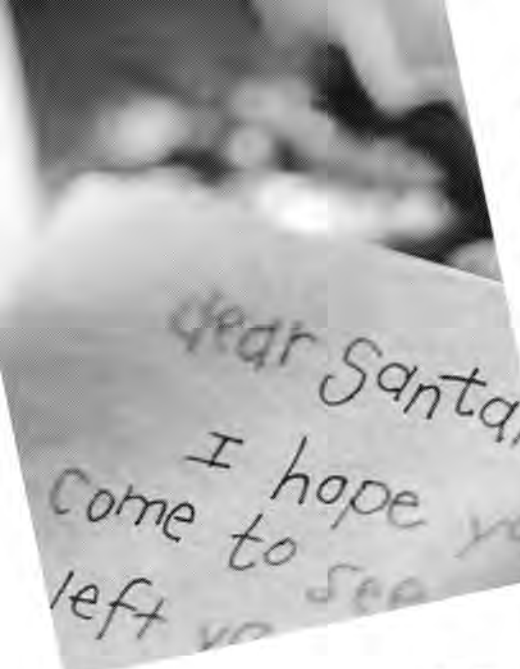 dear Santa
I hope
come to see
left